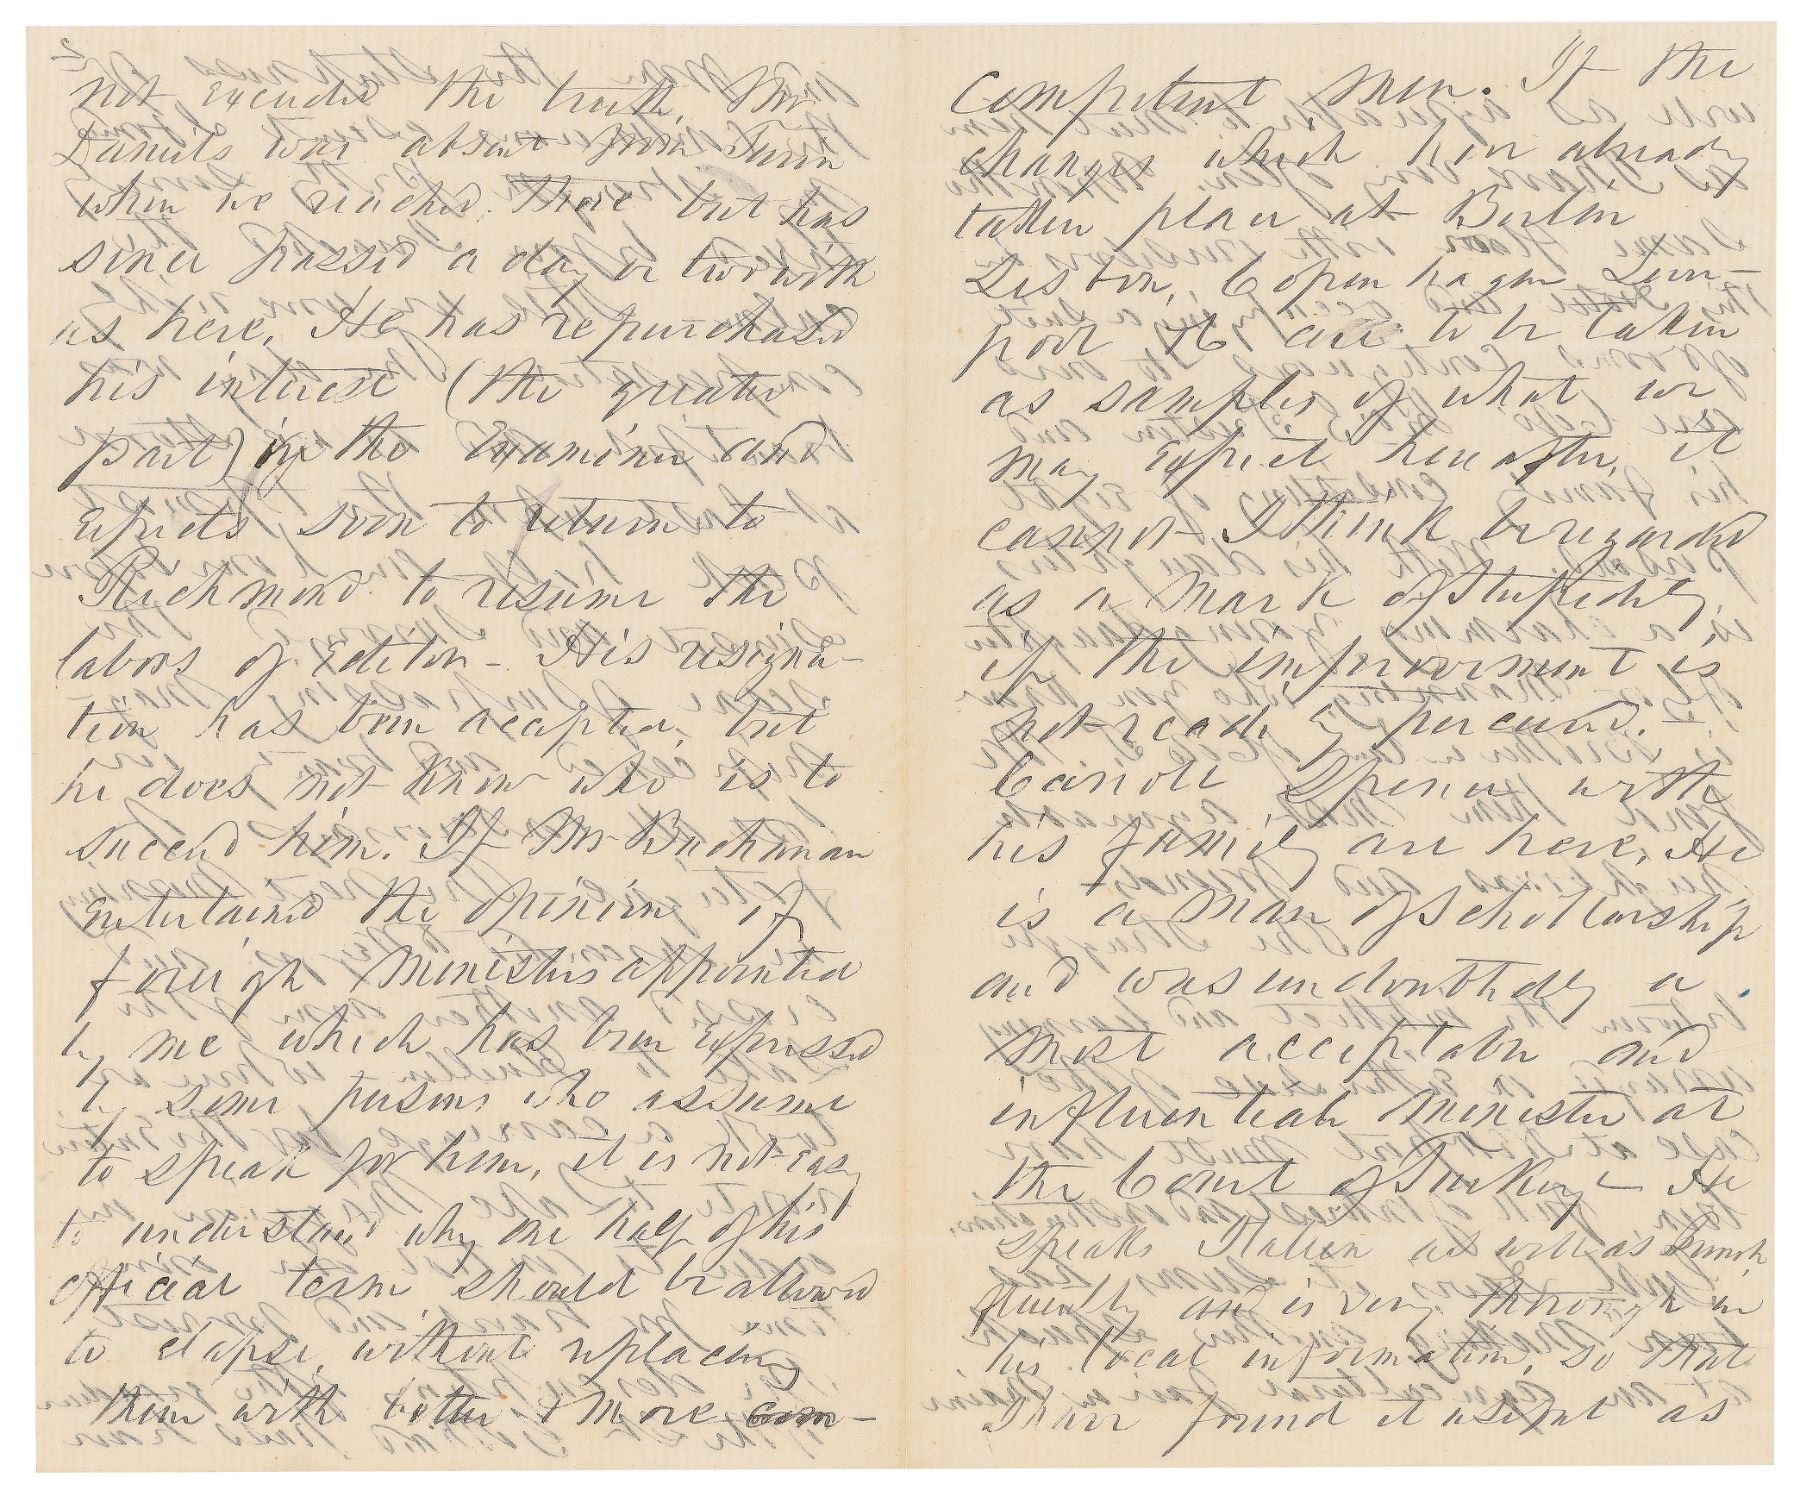 2
not exceeded the truth. Mr
Daniels was absent from Turin
when we reached there but has
since passed a day or two with
us here. He has repurchased
his interest (the greater
part) in the Examiner and
expects soon to return to
Richmond to resume the
labors of Editor - His resigna-
tion has been accepted, but
he does not know who is to
succeed him. If Mr Buchanan
entertained the opinion of
foreign Ministers appointed
by me which has been expressed
by some persons who assume
to speak for him, it is not easy
to understand why one half of his
official term should be allowed
to elapse, without replacing
them with better & more com-
competent men. If the
changes which have already
taken place at Berlin
Lisbon, Copenhagen Liver-
pool &c are to be taken
as samples of what we
may expect hereafter, it
cannot I think be regarded
as a mark of stupidity,
if the improvement is
not readily perceived. -
Carroll Spence with
his family are here. He
is a man of schollarship
and was undoubtedly a
most acceptable and
influential minister at
the Court of Turkey - He
speaks Italian as well as French
fluently and is very thorough in
his local information, so that
I have found it useful as